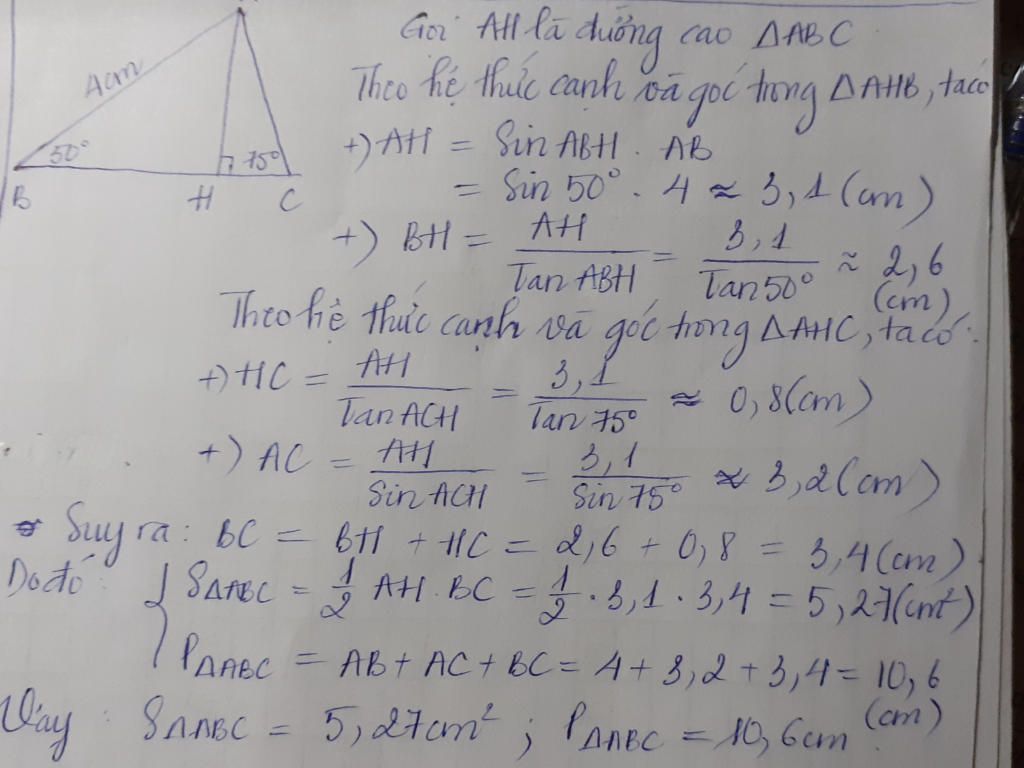 Gọi AH là đường cao ΔABC
4cm
Theo hệ thức cạnh và góc trong ΔAHB, ta có
50°
75°
B H C
+) AH = Sin ABH . AB
= Sin 50° . 4 ≈ 3,1 (cm)
+) BH = AH / Tan ABH = 3,1 / Tan 50° ≈ 2,6 (cm)
Theo hệ thức cạnh và góc trong ΔAHC, ta có:
+) HC = AH / Tan ACH = 3,1 / Tan 75° ≈ 0,8 (cm)
+) AC = AH / Sin ACH = 3,1 / Sin 75° ≈ 3,2 (cm)
Suy ra: BC = BH + HC = 2,6 + 0,8 = 3,4 (cm)
Do đó: { SΔABC = 1/2 AH . BC = 1/2 . 3,1 . 3,4 = 5,27 (cm²)
PΔABC = AB + AC + BC = 4 + 3,2 + 3,4 = 10,6 (cm)
Vậy: SΔABC = 5,27cm² ; PΔABC = 10,6cm